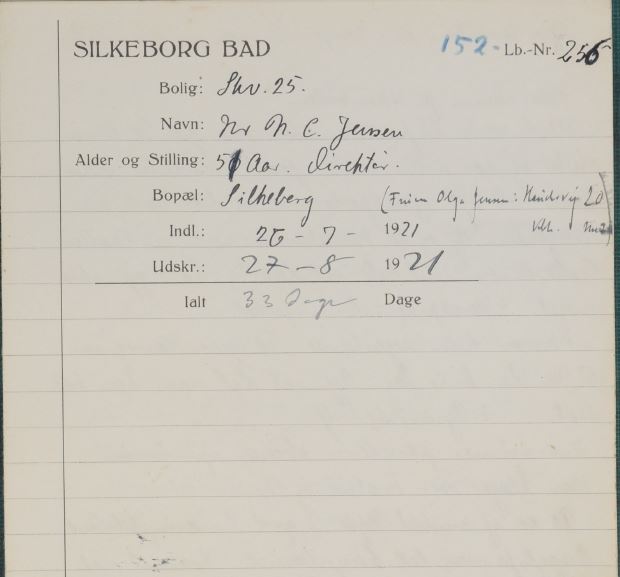 SILKEBORG BAD 152- Lb.-Nr. 256
Bolig: Skv. 25.
Navn: Hr N. C. Jensen
Alder og Stilling: 51 Aar. Direktör.
Bopæl: Silkeborg (Fruen Olga Jensen: 20
Indl.: 26 - 7 - 1921 Kbh.
Udskr.: 27 - 8 1921
Ialt 33 Dage Dage